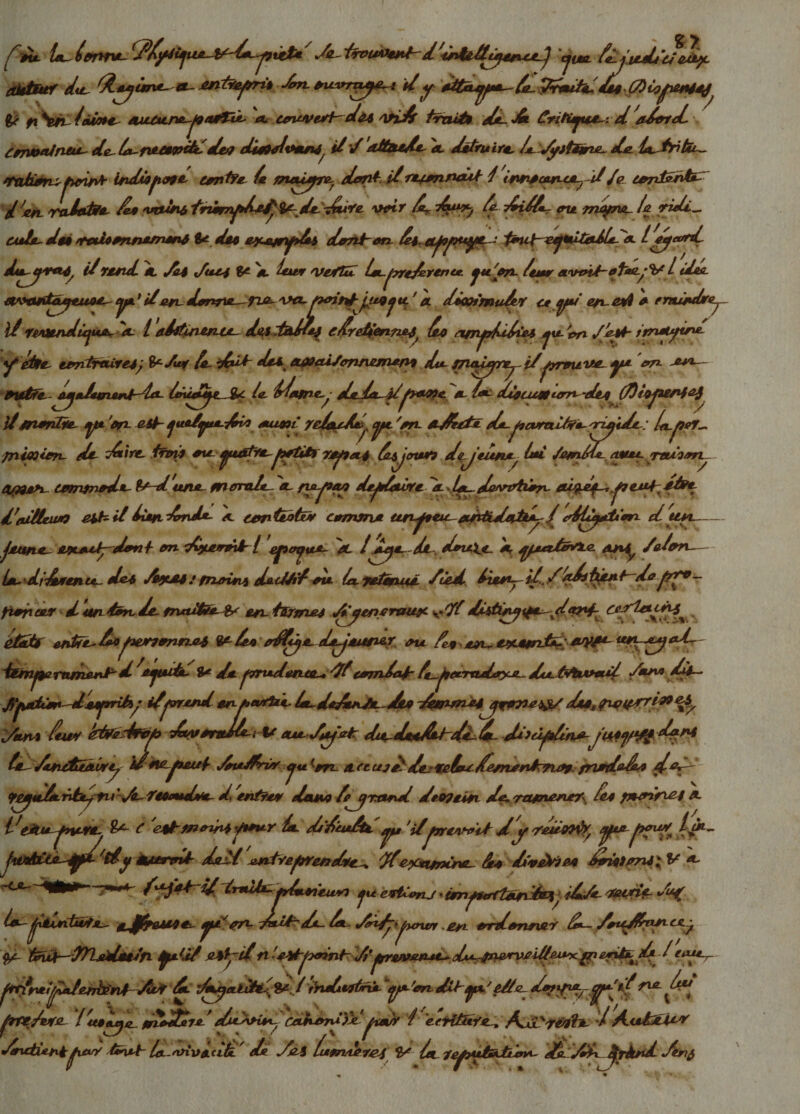 87
(où la bonne Physique & la pieté se trouvent d'intelligence) que le judicieux
auteur du Regime a entrepris son ouvrage: il y attaque le Traité des Dispenses,
& n'en laisse aucune partie à couvert des vifs traits de sa Critique: d'abord
convaincu de la necessité des dissolvans, il s'attache à detruire le Systême de la tritu-
ration: point indisposé contre le maigre, dont il reconnait l'innocence, il se contente
d'en rabattre les vains triomphes, & de faire voir le faux, le foible ou même le ridi-
cule des raisonnemens & des exemples dont on les appuye: tout equitable à l'égard
du gras, il rend à ses sucs & à leur vertu la preference qu'on leur avoit otée; & l'idée
avantageuse qu'il en donne ne va point jusqu'à dissimuler ce qui en est à craindre,
il revendique à l'abstinence des tables chretiennes, les amphibies qu'on s'est imaginé
y être contraires; & sur le fait des assaisonnemens du maigre, il prouve qu'on en
outre également la louange & le blâme; de là il passe à la discussion des Dispenses
il montre qu'on est quelquefois aussi relaché, qu'on affecte de paraitre rigide: la per-
mission de faire trois ou quatre petits repas les jours de jeûne, lui semble avec raison
assez commode & d'une morale à ne pas deplaire à la devotion aisée, peut être
d'ailleurs est-il bien fondé à contester comme un peu antidatée, l'obligation d'un
jeûne exact, dont on fixeroit l'epoque à l'âge de douze à quatorze ans, selon
la difference des sexes: moins decisif où la retenue sied bien, il s'abstient de pro-
noncer d'un ton de maitre & en termes si generaux. Il distingue dans certains
états entre les personnes & les oblige de jeûner ou les en exempte avec un egal
temperament d'equité & de prudence. Il combat le paradoxe du travail sans dis-
sipation d'esprits; il prend en partie la defense des femmes grosses & des nourrices,
sans leur être trop favorable: & au sujet du dechet de la discipline jusques dans
le Sanctuaire, il ne peut souffrir qu'on accuse de relachement nos modeles de
regularité, ni se resoudre d'entrer dans le grand dessein de ramener les moines à
l'eau pure, & c'est moins pour la difficulté qu'il prevoit d'y reüssir, que pour l'in-
justice qu'il y auroit de l'entreprendre. Il examine les diverses boissons; & à
ce sujet il traite plusieurs questions importantes; il se recrie sur
la peinture affreuse qu'on fait de la soif, pour en ordonner la souffrance;
& tout Medecin qu'il est, il n'est point si prevenu du merveilleux merite de l'eau,
principalement sur la sagacité & l'industrie qu'on dit qu'elle donne, qu'il ne lui
prefere l'usage moderé du vin, canonizé par l'ecriture. Au reste l'Auteur
soutient par tout la vivacité de ses lumieres & la reputation de son grand sens